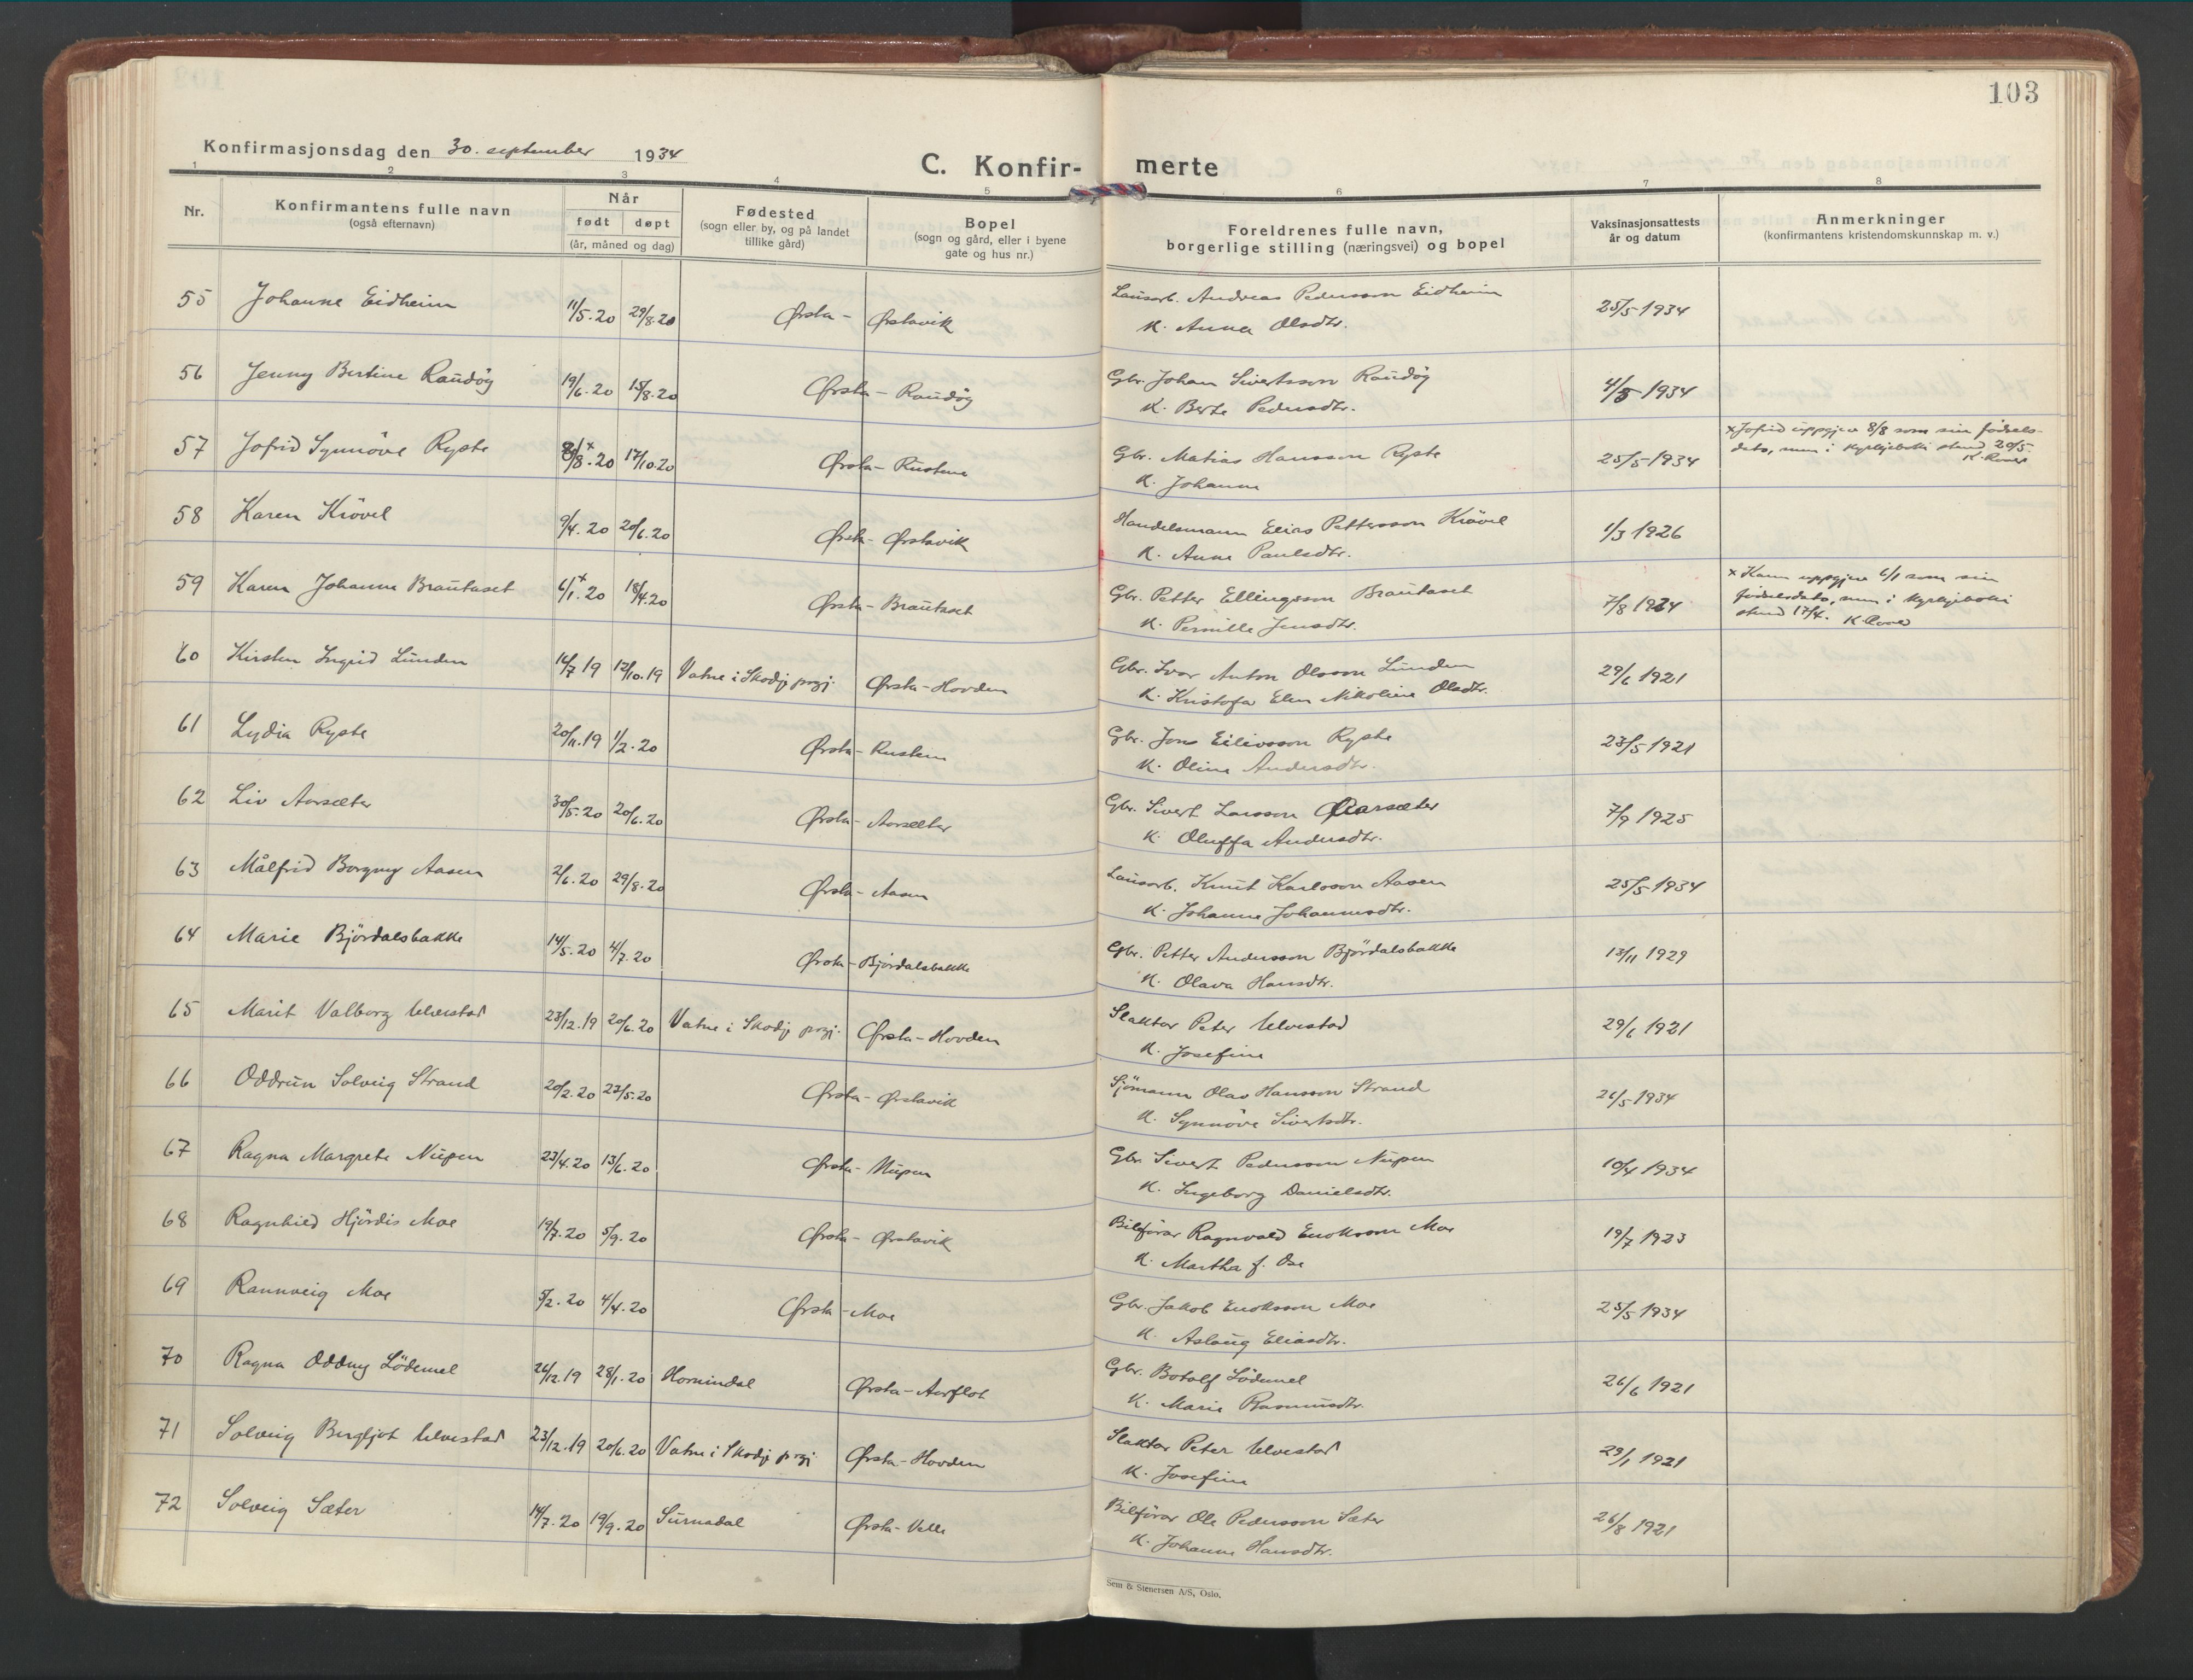 103
Konfirmasjonsdag den 30. september 1934
C. Konfir- merte
1 2 3 4 5 6 7 8
Nr.
Konfirmantens fulle navn
(også efternavn)
Når
født døpt
(år, måned og dag)
Fødested
(sogn eller by, og på landet
tillike gård)
Bopel
(sogn og gård, eller i byene
gate og hus nr.)
Foreldrenes fulle navn,
borgerlige stilling (næringsvei) og bopel
Vaksinasjonsattests
år og datum
Anmerkninger
(konfirmantens kristendomskunnskap m. v.)
55 Johanne Eidheim 11/5.20 29/8.20 Ørsta - Ørstavik Lausarb. Andreas Pedersson Eidheim 25/5 1934
K. Anna Olsdtr.
56 Jenny Bertine Raudøy 19/6.20 15/8.20 Ørsta - Raudøy Gbr. Johan Sivertsson Raudøy 4/5 1934
K. Berte Pedersdtr.
57 Jofrid Synnöve Ryste 8/8+.20 17/10.20 Ørsta - Rusten Gbr. Matias Hansson Ryste 25/5 1934
K. Johanne
x Jofrid uppgjev 8/8 som sin fødsels-
dato, men i kyrkjeboki stend 20/5.
58 Karen Krövel 9/4.20 20/6.20 Ørsta - Ørstavik Handelsmann Elias Pettersson Krövel 1/3 1926
K. Anna Paulsdtr.
59 Karen Johanne Brautaset 6/1+.20 18/4.20 Ørsta - Brautaset Gbr. Petter Ellingsson Brautaset 7/8 1924
K. Pernille Jensdtr.
x Karen uppgjev 6/1 som sin
fødselsdato, men i kyrkjeboki
stend 17/4.
60 Kirsten Ingrid Lunden 14/7 19 12/10.19 Vatne i Skodje prgj. Ørsta - Hovden Gbr. Ivar Anton Olsson Lunden 29/6 1921
K. Kristofa Elen Nikoline Olsdtr.
61 Lydia Ryste 20/11.19 1/2.20 Ørsta - Rusten Gbr. Jons Eilivsson Ryste 23/5 1921
K. Oline Andersdtr.
62 Liv Aarsæter 30/5.20 20/6.20 Ørsta - Aarsæter Gbr. Sivert Larsson Aarsæter 7/9 1925
K. Oluffa Andersdtr.
63 Målfrid Borgny Aasen 2/6.20 29/8.20 Ørsta - Aasen Lausarb. Knut Karlsson Aasen 25/5 1934
K. Johanne Johannesdtr.
64 Marie Björdalsbakke 14/5.20 4/7.20 Ørsta - Björdalsbakke Gbr. Petter Andersson Björdalsbakke 13/11 1929
K. Olava Hansdtr.
65 Marit Valborg Ulvestad 23/12.19 20/6.20 Vatne i Skodje prgj. Ørsta - Hovden Slaktar Peter Ulvestad 29/6 1921
K. Josefine
66 Oddrun Solveig Strand 20/2.20 23/5.20 Ørsta - Ørstavik Sjömann Olav Hansson Strand 26/5 1934
K. Synnöve Sivertsdtr.
67 Ragna Margrete Nupen 23/4.20 13/6.20 Ørsta - Nupen Gbr. Sivert Pedersson Nupen 10/4 1934
K. Ingeborg Danielsdtr.
68 Ragnhild Hjördis Moe 19/7.20 5/9.20 Ørsta - Ørstavik Bilförar Ragnvald Enoksson Moe 19/7 1923
K. Martha f. Ose
69 Rannveig Moe 5/2.20 4/4.20 Ørsta - Moe Gbr. Jakob Enoksson Moe 25/5 1934
K. Aslaug Eliasdtr.
70 Ragna Oddny Lödemel 26/12.19 28/1.20 Hornindal Ørsta - Aarflot Gbr. Botolf Lödemel 26/6 1921
K. Marie Rasmusdtr.
71 Solveig Bergljot Ulvestad 23/12.19 20/6.20 Vatne i Skodje prgj Ørsta - Hovden Slaktar Peter Ulvestad 29/1 1921
K. Josefine
72 Solveig Sæter 14/7.20 19/9.20 Surnadal Ørsta - Velle Bilförar Ole Pedersson Sæter 26/8 1921
K. Johanne Hansdtr.
Sem & Stenersen A/S, Oslo.